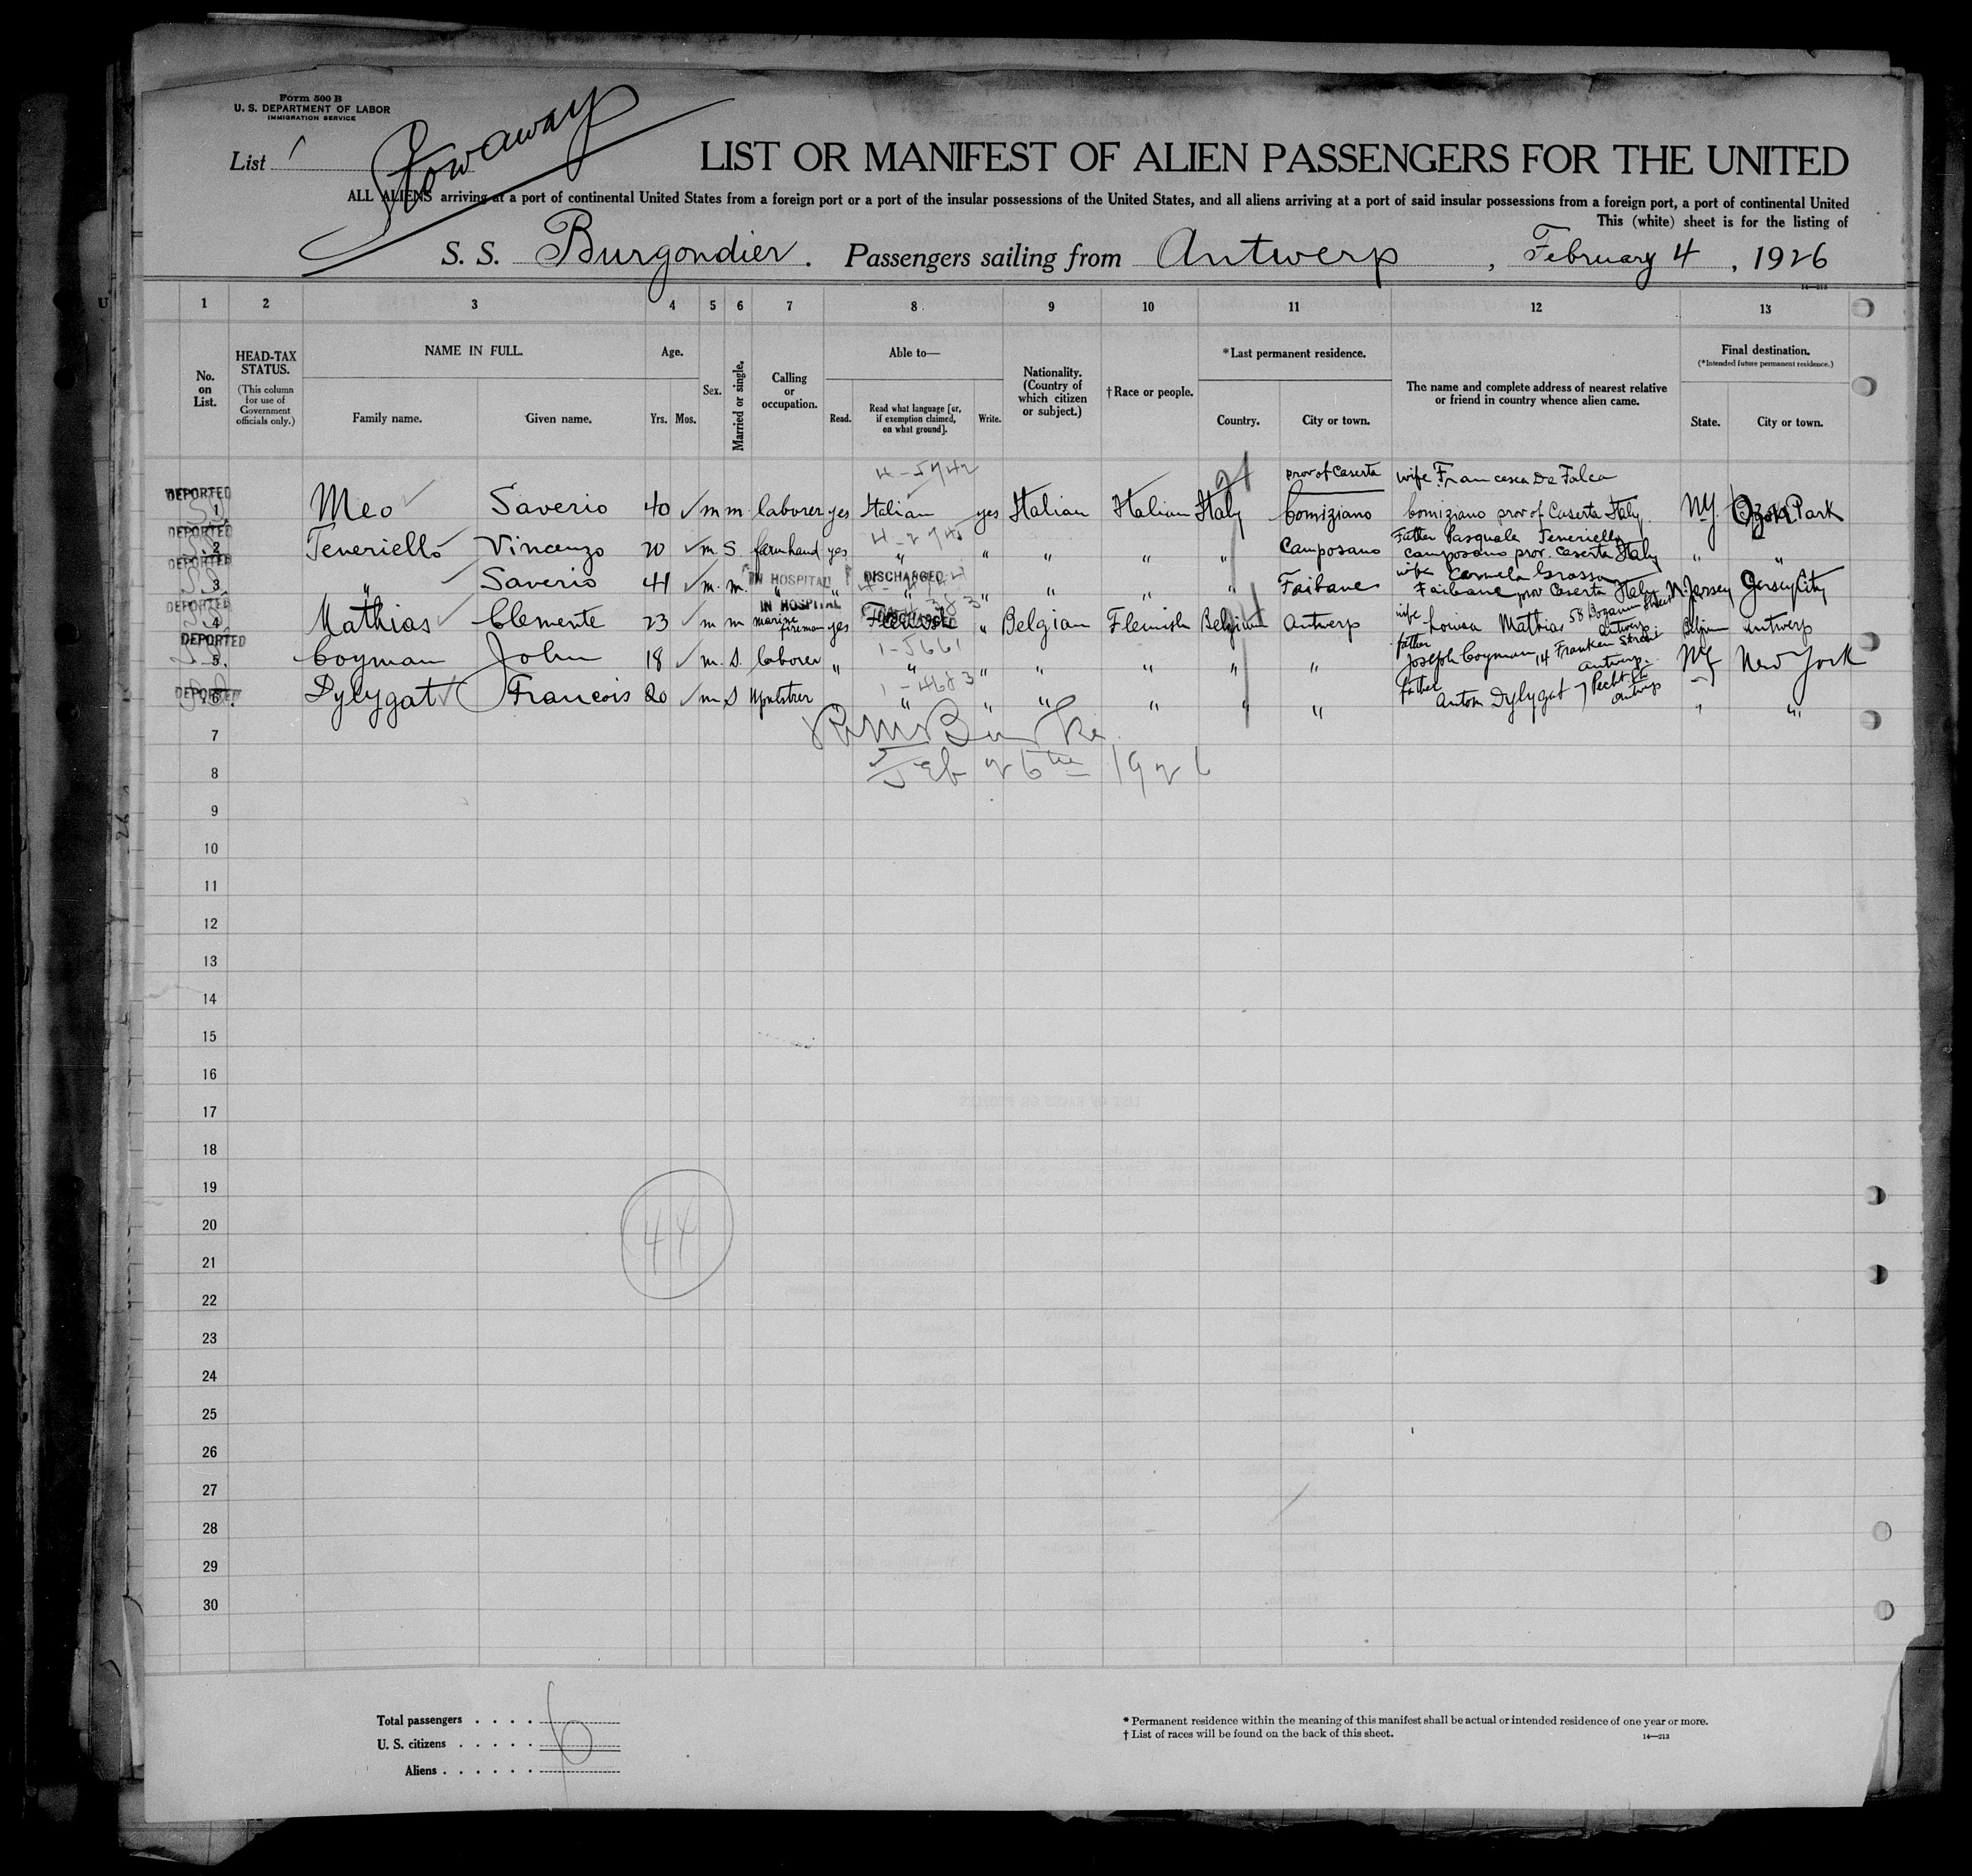 Form 500 B
U. S. DEPARTMENT OF LABOR
IMMIGRATION SERVICE
List 1
Stowaway
LIST OR MANIFEST OF ALIEN PASSENGERS FOR THE UNITED
ALL ALIENS arriving at a port of continental United States from a foreign port or a port of the insular possessions of the United States, and all aliens arriving at a port of said insular possessions from a foreign port, a port of continental United
This (white) sheet is for the listing of
S. S. Burgondier. Passengers sailing from Antwerp, February 4, 1926
14—213
1 2 3 4 5 6 7 8 9 10 11 12 13
No. on List.
HEAD-TAX STATUS.
(This column for use of Government officials only.)
NAME IN FULL.
Family name. Given name.
Age.
Yrs. Mos.
Sex.
Married or single.
Calling or occupation.
Able to—
Read. Read what language [or, if exemption claimed, on what ground]. Write.
Nationality. (Country of which citizen or subject.)
†Race or people.
*Last permanent residence.
Country. City or town.
The name and complete address of nearest relative or friend in country whence alien came.
Final destination.
(*Intended future permanent residence.)
State. City or town.
4-5742 prov of Caserta wife Francesca De Falca
DEPORTED 1 Meo Saverio 40 m m laborer yes Italian yes Italian Italian Italy Comiziano comiziano prov of Caserta Italy N.Y. Ozone Park
DEPORTED 2 Teneriello Vincenzo 20 m S. farmhand yes " " " " " Camposano Father Pasquale Teneriello camposano prov. caserta Italy " "
DEPORTED 3 " Saverio 41 m. m. IN HOSPITAL " " DISCHARGED " " " " " Faibane wife Carmela Grasso Faibane prov Caserta Italy N. Jersey Jersey City
DEPORTED 4 Mathias Clemente 23 m m IN HOSPITAL marine fireman yes DISCHARGED Flemish " Belgian Flemish Belgium Antwerp wife Louisa Mathias 58 Antwerp Belgium Antwerp
DEPORTED 5. Coyman John 18 m. S. laborer " 1-5661 " " " " " " father Joseph Coyman 14 Franken Street Antwerp. NY New York
DEPORTED 6. Dylygat Francois 20 m S " 1-4683 " " " " " " father Anton Dylygat 7 Pecht St Antwerp " "
Feb 26th 1926
7
8
9
10
11
12
13
14
15
16
17
18
19
20
21
22
23
24
25
26
27
28
29
30
44
Total passengers . . . .
U. S. citizens . . . . . 6
Aliens . . . . . .
* Permanent residence within the meaning of this manifest shall be actual or intended residence of one year or more.
† List of races will be found on the back of this sheet.
14—213